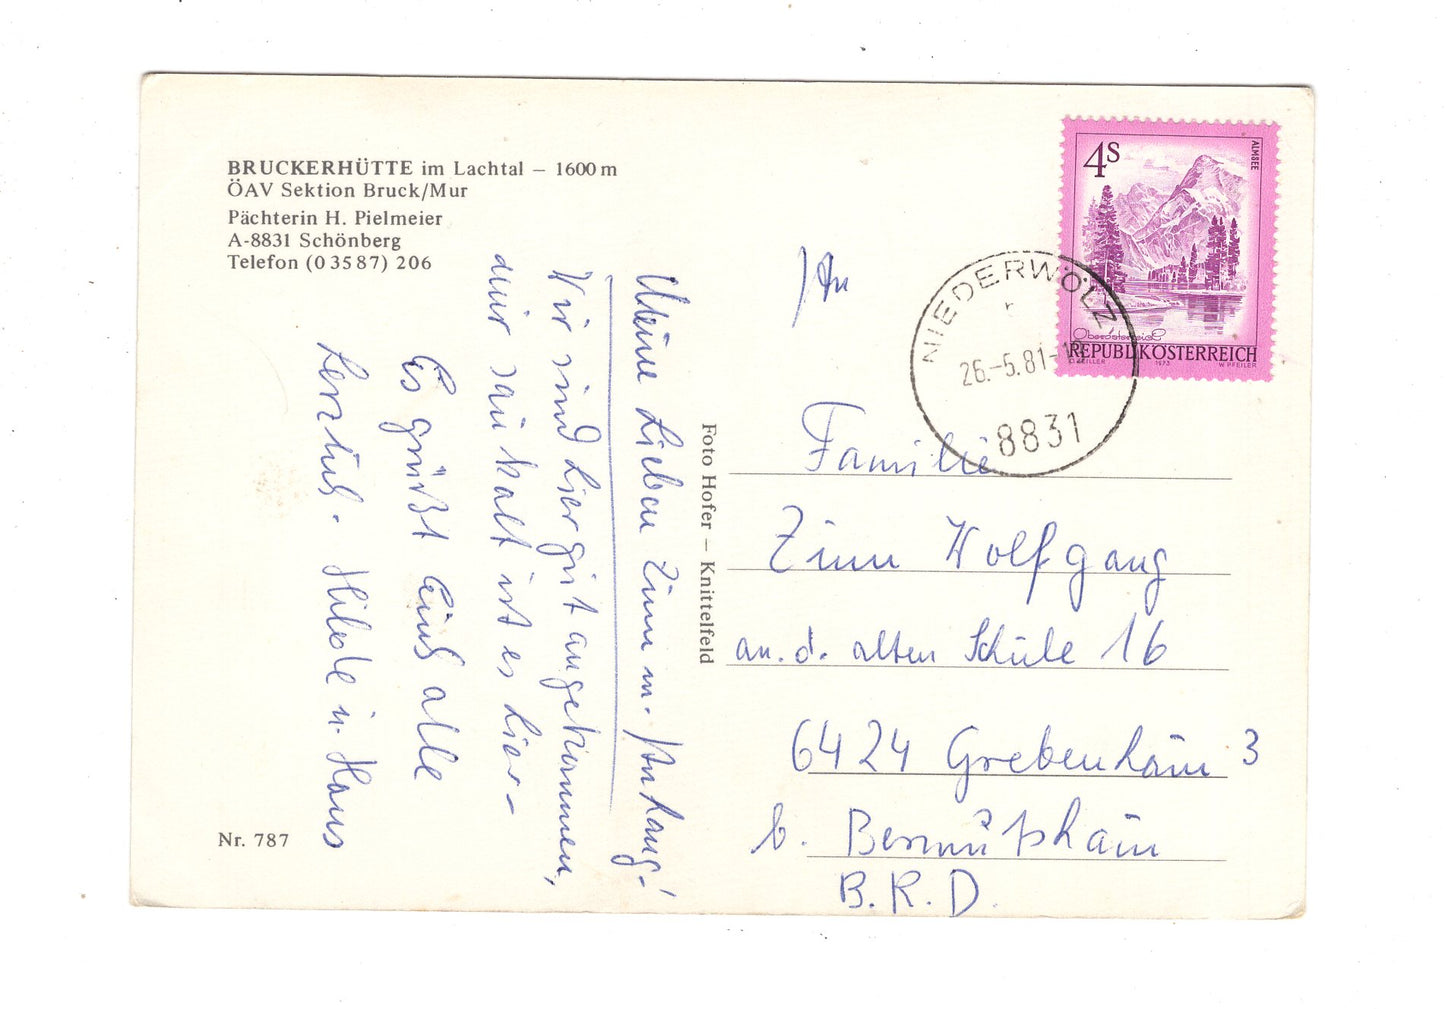 BRUCKERHÜTTE im Lachtal – 1600 m
ÖAV Sektion Bruck/Mur
Pächterin H. Pielmeier
A-8831 Schönberg
Telefon (0 35 87) 206
Meine Lieben Zinn m. Anhang!
Wir sind hier gut angekommen,
nur sau kalt ist es hier-
Es grüßt Euch alle
herzlich. Hilde u. Hans
Nr. 787
Foto Hofer – Knittelfeld
4S
ALMSEE
Oberösterreich
REPUBLIK ÖSTERREICH
1973
W. PFEILER
NIEDERWÖLZ
26.-5.81-
8831
An
Familie
Zinn Wolfgang
an. d. alten Schule 16
6424 Grebenhain 3
b. Bermutshain
B.R.D.